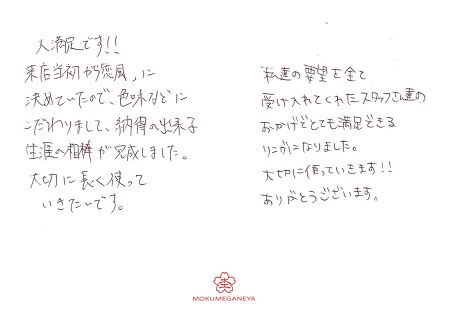 大満足です!!
来店当初から恋風」に
決めていたので、色味などに
こだわりまして、納得の出来る
生涯の相棒が完成しました。
大切に長く使って
いきたいです。
私達の要望を全て
受け入れてくれたスタッフさん達の
おかげでとても満足できる
リングになりました。
大切に使っていきます!!
ありがとうございます。
MOKUMEGANEYA